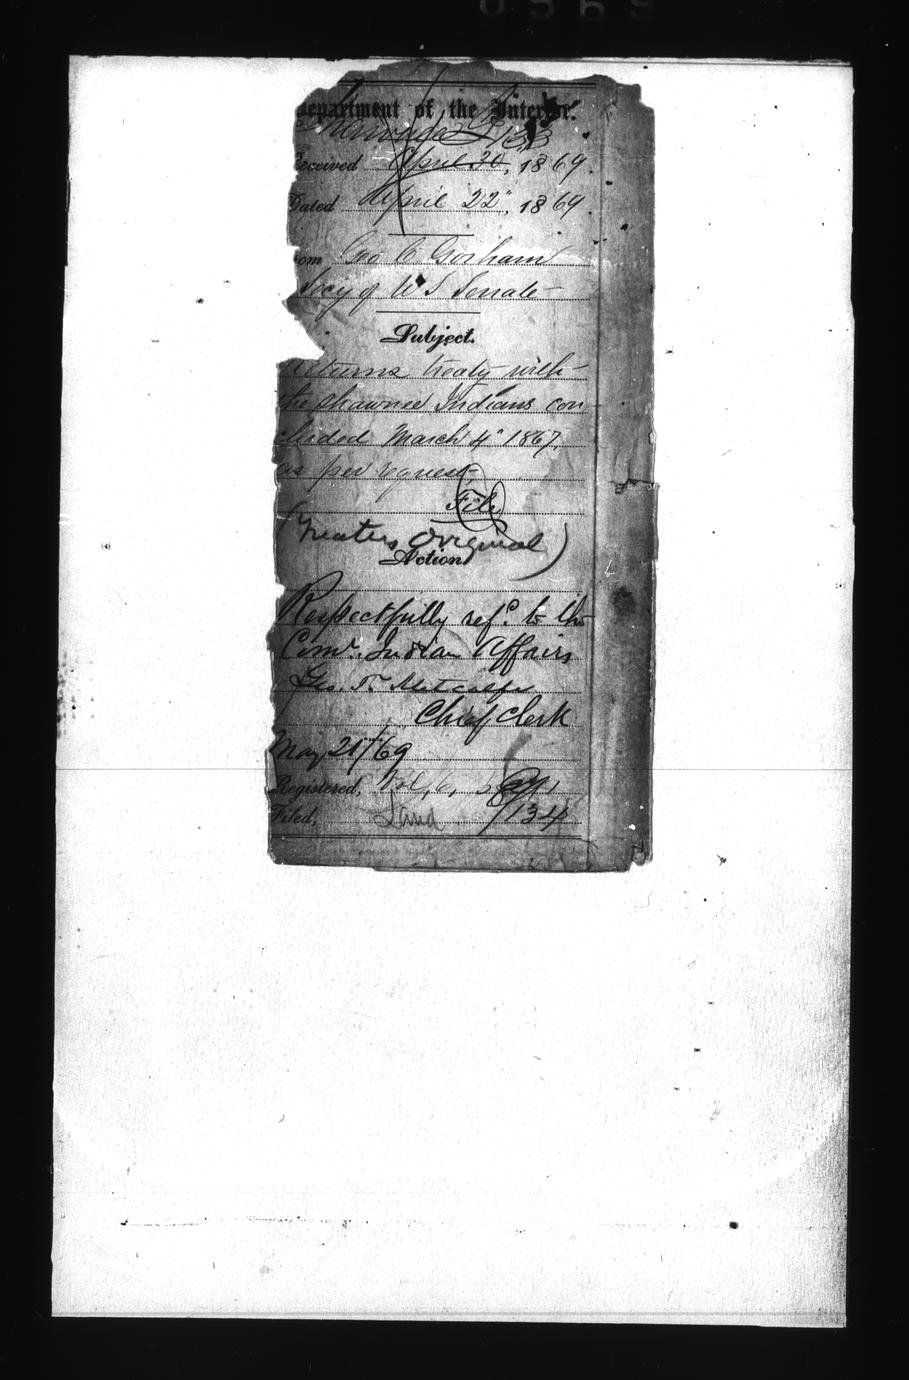 Department of the Interior.
Shawnee I 133
Received April 30, 1869.
Dated April 22", 1869.
From Geo C Gorham
Secy of U S Senate
Subject.
Returns treaty with
the Shawnee Indians con-
cluded March 4" 1867,
as per request
File
Original)
Action
Respectfully refd. to the
Comr. Indian Affairs
Geo. T. Metcalfe
Chief Clerk
May 21/69
Registered, Vol, 6,
Filed, Land 134